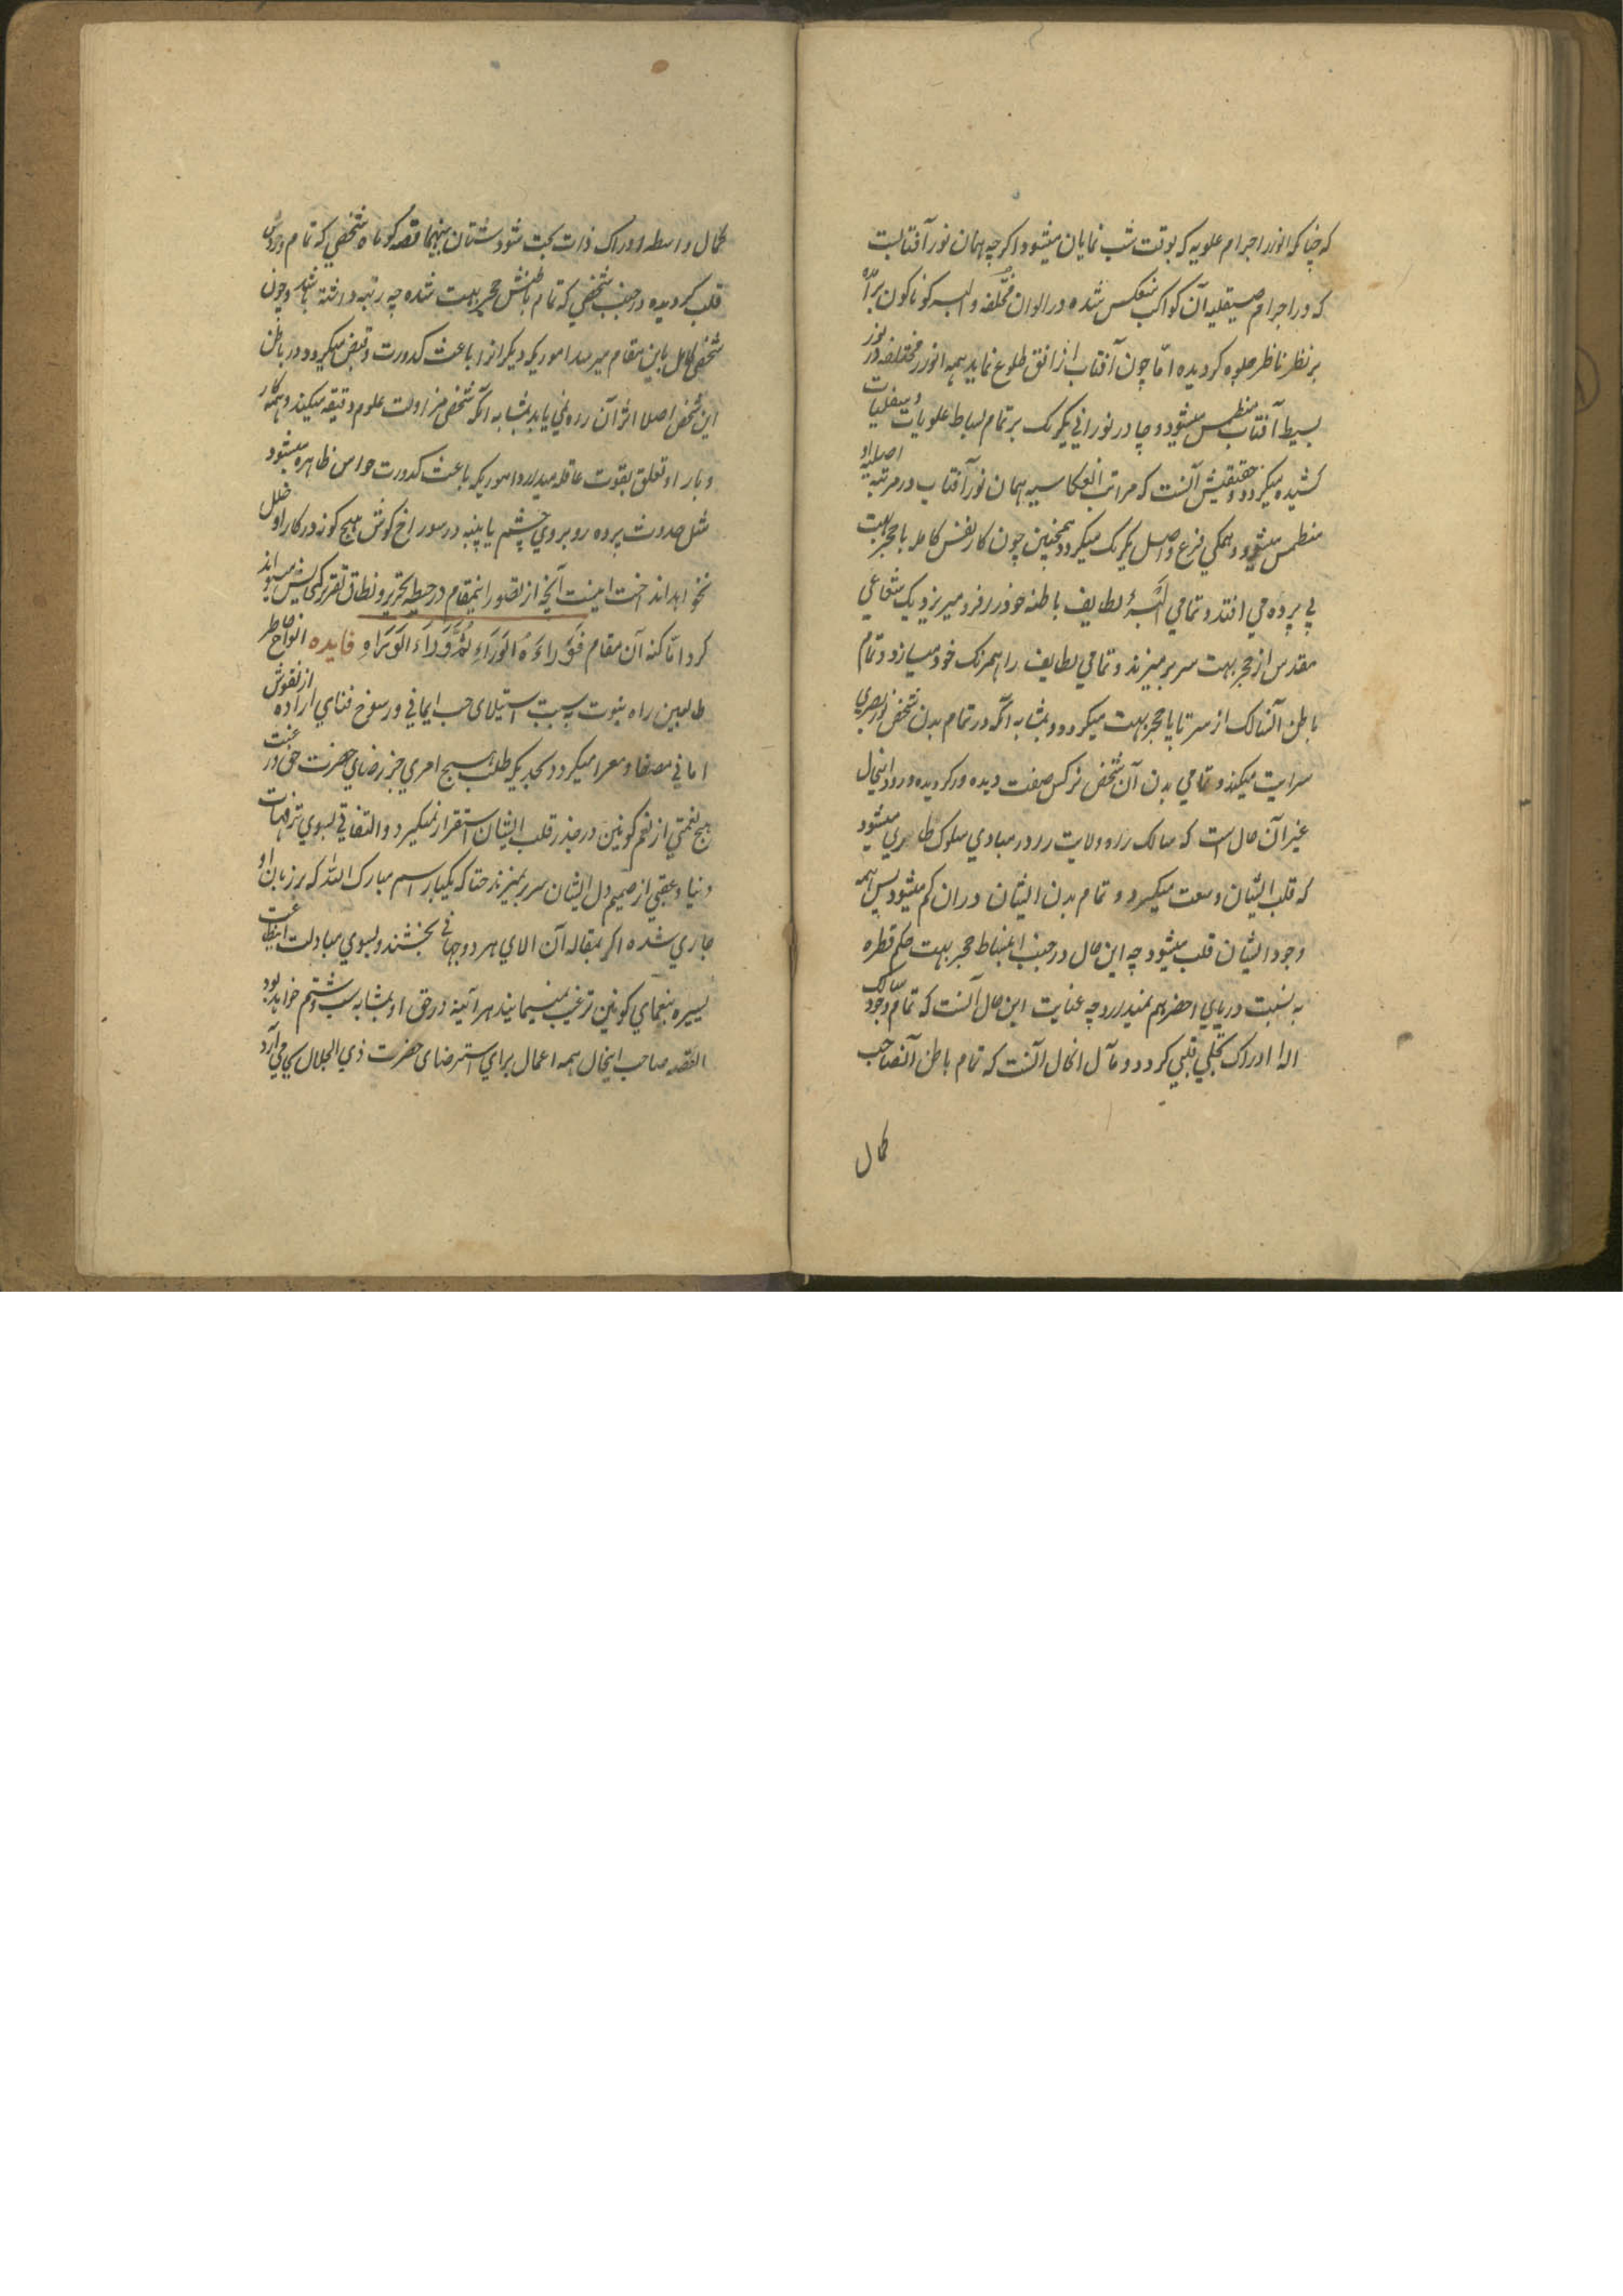 که چنانکه انوار اجرام علویه که بوقت شب نمایان میشود اگرچه همان نور آفتابست
که در اجرام صیقلیه آن کواکب منعکس شده در الوان مختلفه و البسه کوناکون برآمده
بر نظر ناظر جلوه کردیده امّا چون آفتاب از افق طلوع نماید همه انوار مختلفه در نور
بسیط آفتاب منطمس میشود و چادر نورانی یکرنک بر تمام بساط علویات و سفلیات
کشیده میکردد و حقیقتش آنست که مراتب انعکاسیه همان نور آفتاب در مرتبه اصلیه او
منطمس میشود و همکی فرع و اصل یکرنک میکردد همچنین چون کار نفس کامله با حجر بهت
بی پرده می افتد و تمامی البسهٔ لطایف باطنه خود را فرو میریزد یک شعاعی
مقدس از حجر بهت سر بر میزند و تمامی لطایف را همرنک خود میسازد و تمام
باطن آنسالک از سر تا پا حجر بهت میکردد و بمثابه آنکه در تمام بدن شخصی نور بصری
سرایت میکند و تمامی بدن آن شخص نرکس صفت دیده ور کردیده و رود اینحال
غیر آن حال است که سالک راه ولایت را در مبادی سلوک طاری میشود
که قلب ایشان وسعت میکیرد و تمام بدن ایشان دران کم میشود پس همه
وجود ایشان قلب میشود چه این حال در جنب انبساط حجر بهت حکم قطره
به نسبت دریای اخضر هم نمیدارد چه غایت این حال آنست که تمام وجود سالک
الهٔ ادراک تجلی قلبی کردد و مآل انحال آنست که تمام باطن آنصاحب
کمال
کمال واسطه ادراک ذات بحت شود شتان بینهما قصه کوتاه شخصی که تمام وجودش
قلب کردیده در جنب شخصی که تمام باطنش حجر بهت شده چه رتبه داشته باشد و چون
شخص کامل باین مقام میرسد اموریکه دیکران را باعث کدورت و قبض میکردد در باطن
این شخص اصلا اثر آن راه نمی یابد بمثابه آنکه شخصی مزاولت علوم دقیقه میکند و همه کار
و بار او تعلق بقوت عاقله میدارد اموریکه باعث کدورت حواس ظاهره میشود
مثل حدوث پرده روبروی چشم یا پنبه در سوراخ کوش هیچ کونه در کار او خلل
نخواهد انداخت اینست آنچه از تصور اینمقام در حیطه تحریر و نطاق تقریر کنجایش میتواند
کرد امّا کنه آن مقام فَوَرَاءَهُ الوَرَاءِ ثُمَّ وَرَاءَ الوَرَاءِ فایده الواح خاطر
طالبین راه نبوت به سبب استیلای حب ایمانی و رسوخ فنای اراده از نقوش
امانی مصفا و معرا میکردد بحدیکه طلب هیچ امری جز رضای حضرت حق و رغبت
هیچ نعمتی از نعم کونین در جذر قلب ایشان استقرار نمیکیرد و التفاتی بسوی ترقیات
دنیا و عقبی از صمیم دل ایشان سر بر نمیزند حتا که یکبار اسم مبارک الله که بر زبان او
جاری شده اکر بمقابله آن الای هر دو جهانی بخشند و بسوی مبادلت
یسیره بنعمای کونین ترغیب مینمایند هر آئینه در حق او بمثابه سب و شتم خواهد بود
القصه صاحب اینحال همه اعمال برای استرضای حضرت ذی الجلال بجا می آرد